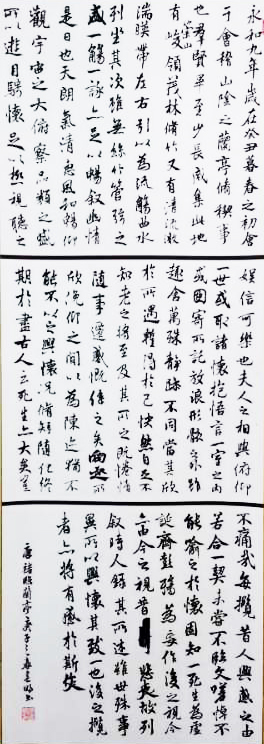 永和九年歲在癸丑暮春之初會
于會稽山陰之蘭亭脩稧事
也群賢畢至少長咸集此地
有峻領茂林脩竹又有清流激
湍暎帶左右引以為流觴曲水
列坐其次雖無絲竹管弦之
盛一觴一詠亦足以暢敘幽情
是日也天朗氣清惠風和暢仰
觀宇宙之大俯察品類之盛
所以遊目騁懷足以極視聽之
娛信可樂也夫人之相與俯仰
一世或取諸懷抱悟言一室之內
或因寄所託放浪形骸之外雖
趣舍萬殊靜躁不同當其欣
於所遇蹔得於己快然自足不
知老之將至及其所之既惓情
隨事遷感慨係之矣向之所
欣俛仰之間以為陳迹猶不
能不以之興懷況脩短隨化終
期於盡古人云死生亦大矣豈
不痛哉每攬昔人興感之由
若合一契未嘗不臨文嗟悼不
能喻之於懷固知一死生為虛
誕齊彭殤為妄作後之視今
亦由今之視昔悲夫故列
敘時人錄其所述雖世殊事
異所以興懷其致一也後之攬
者亦將有感於斯文
臨蘭亭庚子之春